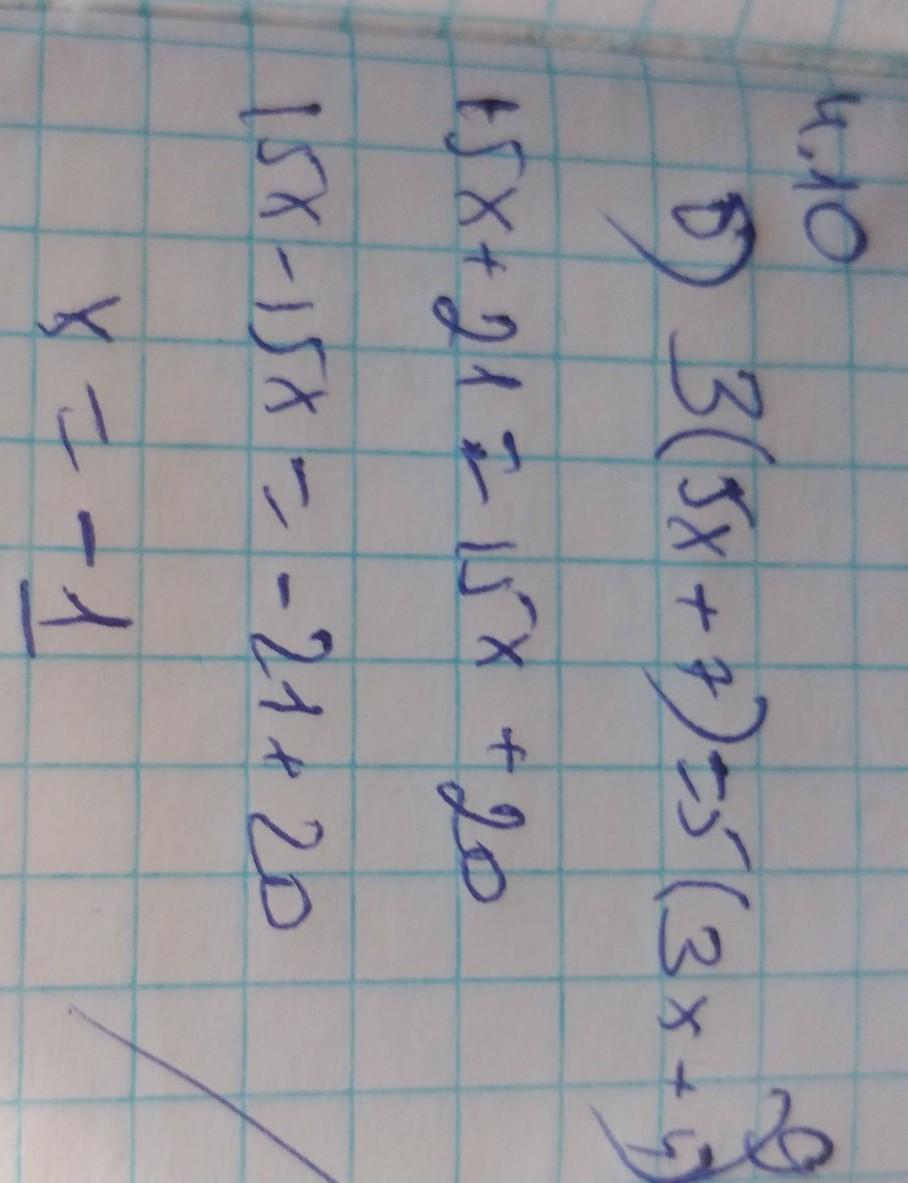 4.10
б) 3(5x+7)=5(3x+4)
15x+21=15x+20
15x-15x=-21+20
x=-1